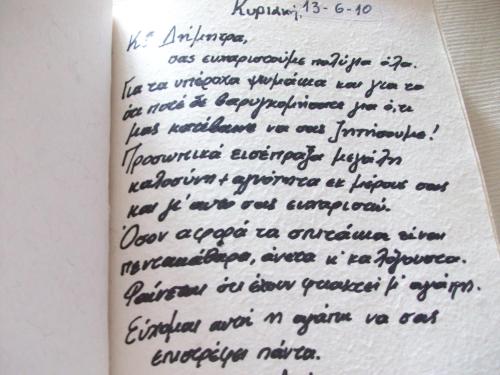 Κυριακή, 13-6-10
Κα Δήμητρα,
σας ευχαριστούμε πολύ για όλα.
Για τα υπέροχα ψωμάκια και για το
ότι ποτέ δε βαρυγκομήσατε για ό,τι
μας κατέβαινε να σας ζητήσουμε!
Προσωπικά εισέπραξα μεγάλη
καλοσύνη + αγνότητα εκ μέρους σας
και γι' αυτό σας ευχαριστώ.
Όσον αφορά τα σπιτάκια είναι
πεντακάθαρα, άνετα κ' καλόγουστα.
Φαίνεται ότι έχουν φτιαχτεί μ' αγάπη.
Εύχομαι αυτή η αγάπη να σας
επιστρέφει πάντα.